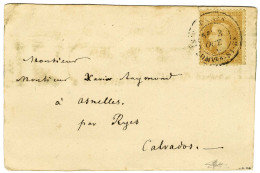 Monsieur
Monsieur Xavier Raymond
à Asnelles
par Ryes
Calvados.